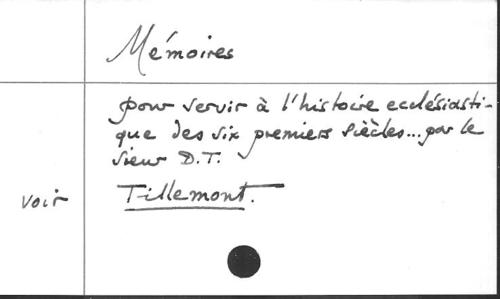 Mémoires
pour servir à l'histoire ecclésiasti-
que des six premiers siècles... par le
sieur D.T.
voir Tillemont.